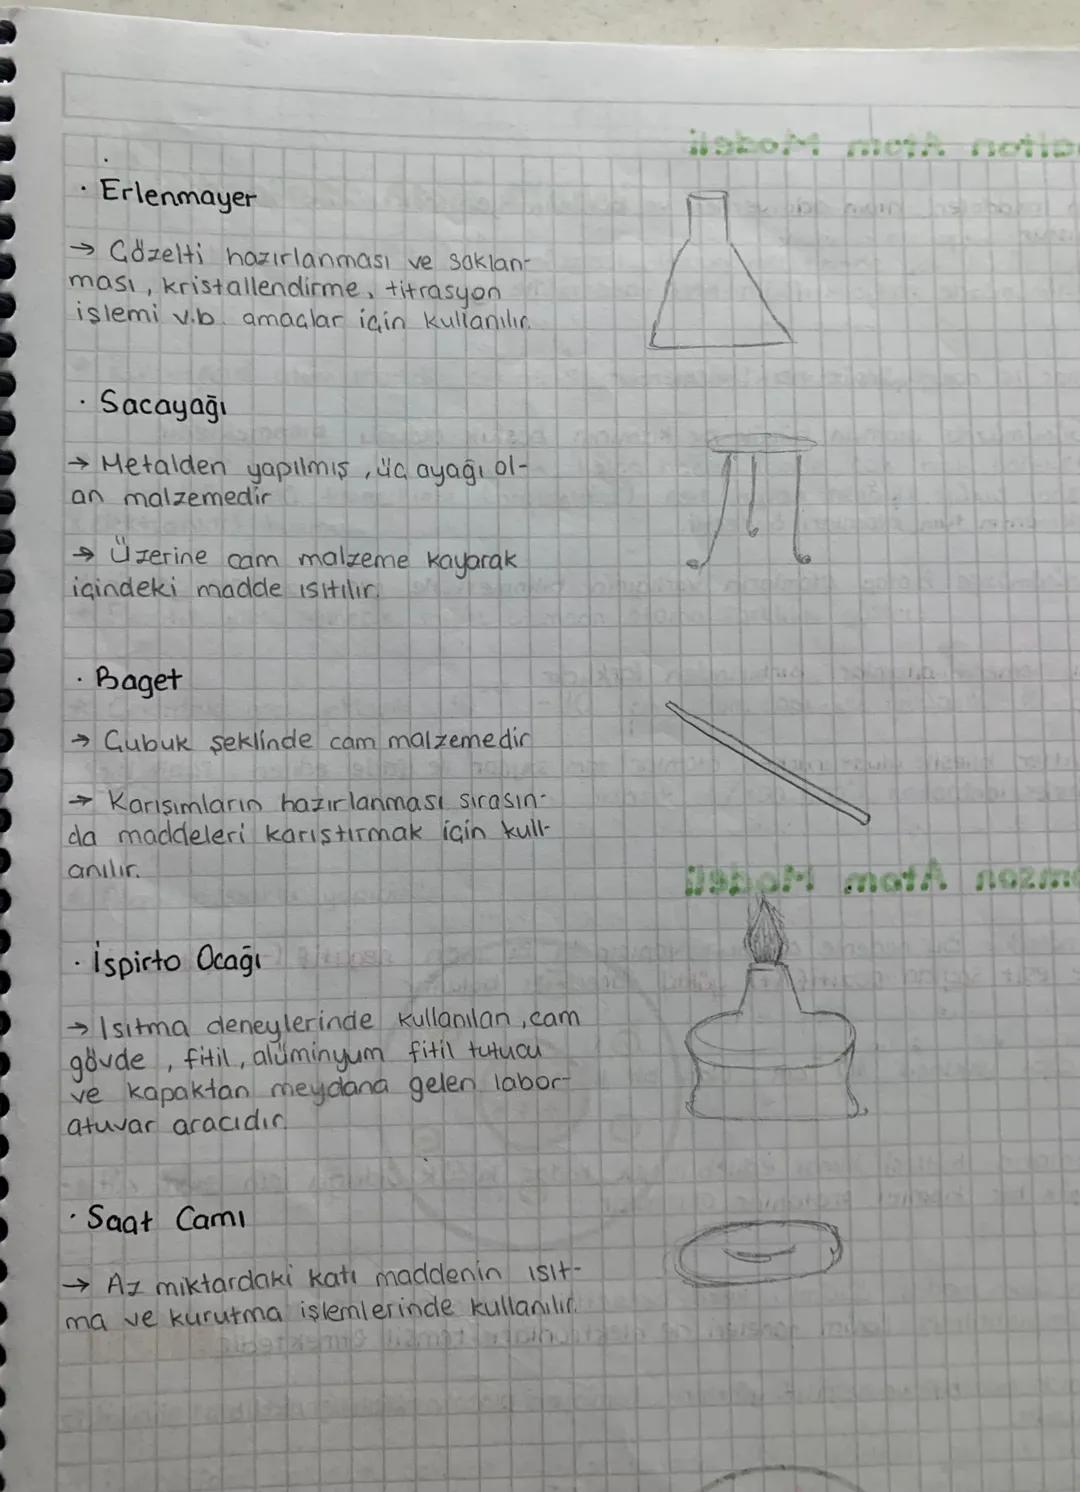 · Erlenmayer
→ Çözelti hazırlanması ve saklan-
ması, kristallendirme, titrasyon
işlemi v.b. amaçlar için kullanılır.
· Sacayağı
→ Metalden yapılmış, üç ayağı ol-
an malzemedir
→ Üzerine cam malzeme koyarak
içindeki madde ısıtılır.
· Baget
→ Çubuk şeklinde cam malzemedir
→ Karışımların hazırlanması sırasın-
da maddeleri karıştırmak için kull-
anılır.
· İspirto Ocağı
→ Isıtma deneylerinde kullanılan, cam
gövde, fitil, alüminyum fitil tutucu
ve kapaktan meydana gelen labor-
atuvar aracıdır.
· Saat Camı
→ Az miktardaki katı maddenin ısıt-
ma ve kurutma işlemlerinde kullanılır.